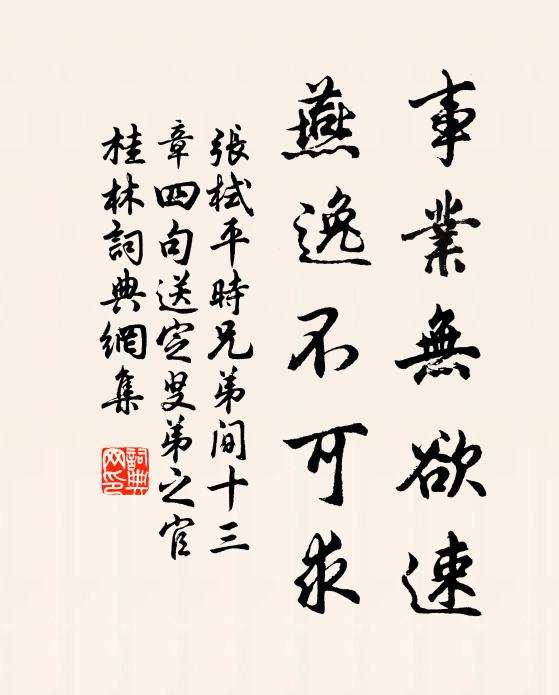 事業無欲速
燕逸不可求
張栻平時兄弟間十三
章四句送定叟弟之官
桂林詞典網集
詞典网印